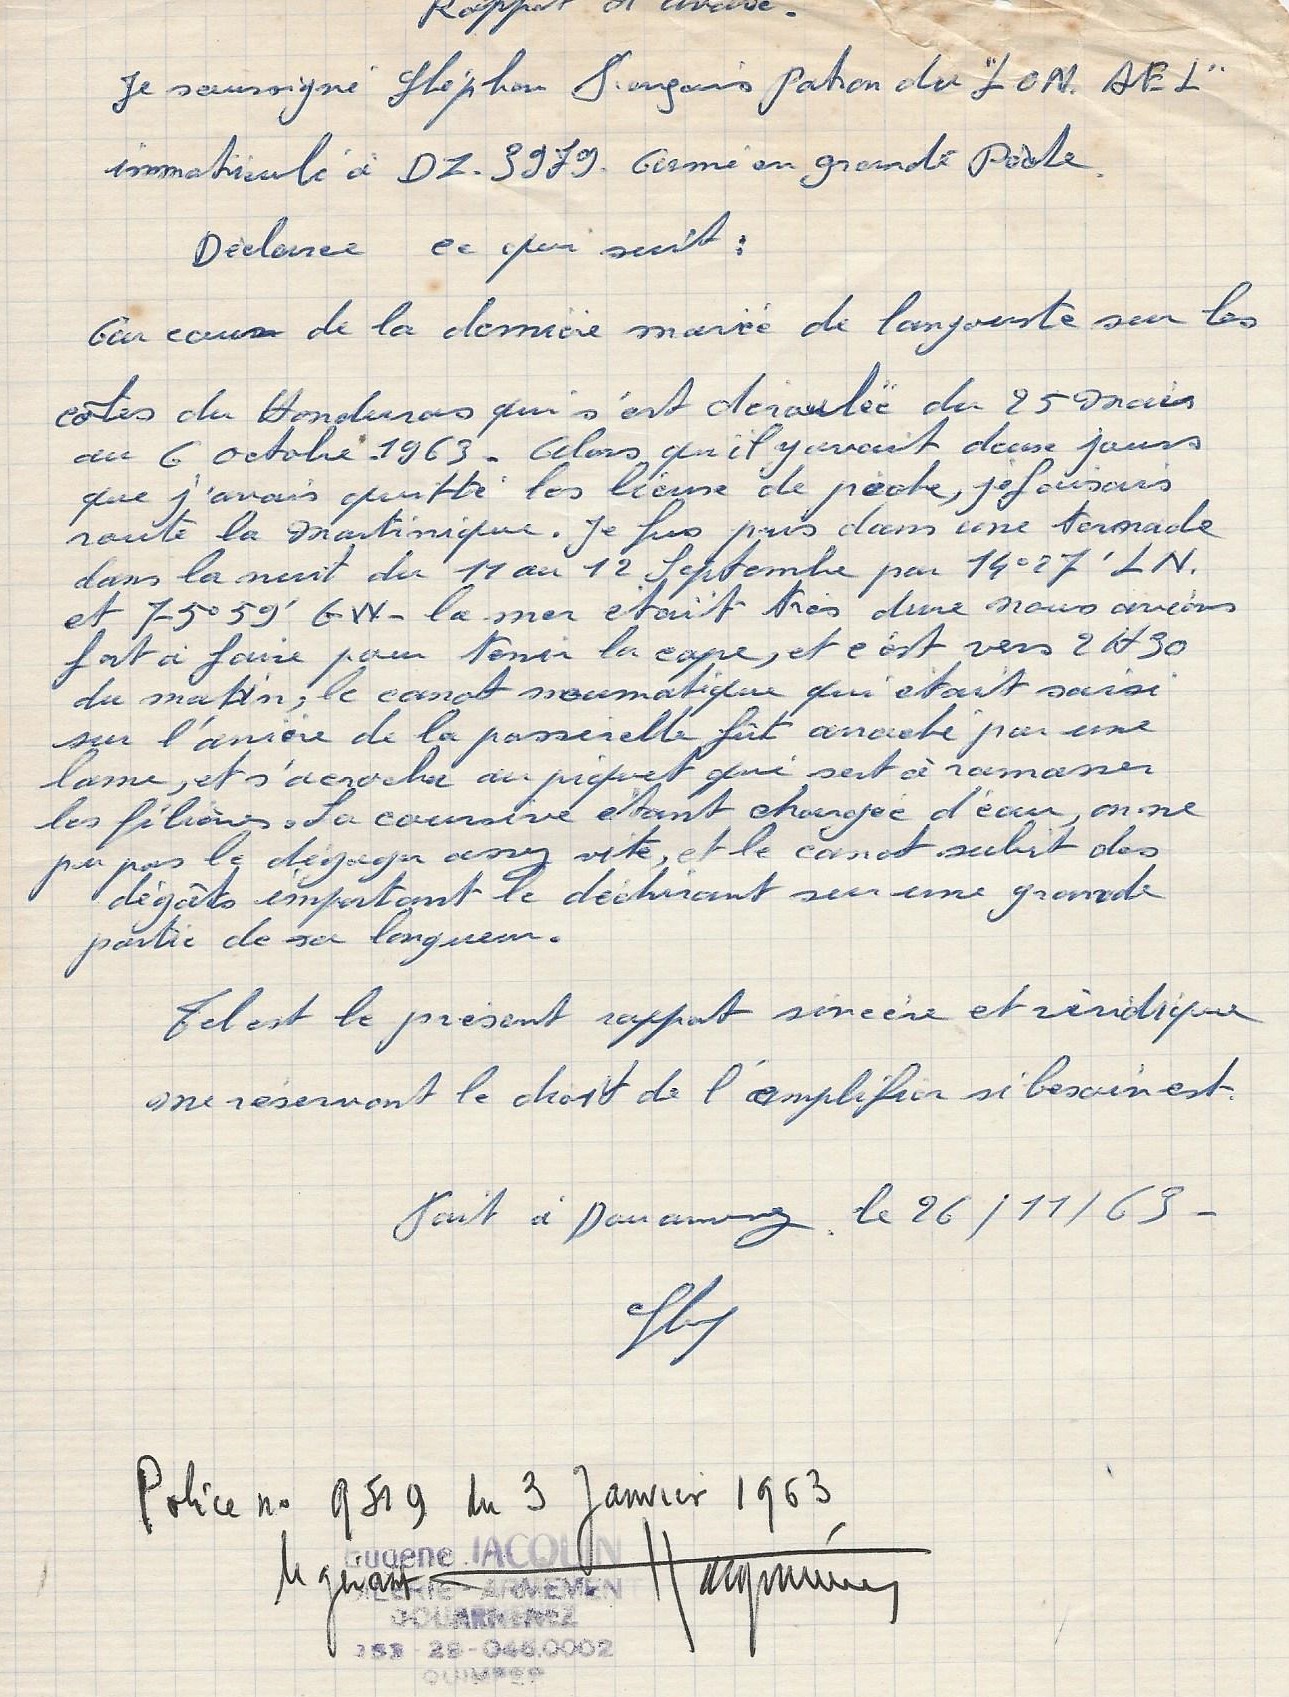 Rapport d'avarie.
Je soussigné Stéphan François Patron du "LON. AEL"
immatriculé à DZ. 3979. Armé en grande Pêche.
Déclare ce qui suit :
Au cours de la dernière marée de langouste sur les
côtes du Honduras qui s'est déroulée du 25 Mais
au 6 octobre .1963. Alors qu'il y avait deux jours
que j'avais quitté les lieux de pêche, je faisais
route la Martinique. Je fus pris dans une tornade
dans la nuit du 11 au 12 Septembre par 14°27' LN.
et 75°59' GW - la mer était très dure nous avions
fort à faire pour tenir la cape, et c'est vers 2H30
du matin, le canot neumatique qui était saisi
sur l'arrière de la passerelle fût arraché par une
lame, et s'acrocha au piquet qui sert à ramasser
les filières. La coursive étant chargée d'eau, on ne
pu pas le dégager assez vite, et le canot subit des
dégâts important le déchirant sur une grande
partie de sa longueur.
Tel est le présent rapport sincère et véridique
me réservant le droit de l'amplifier si besoin est.
Fait à Douarnenez. le 26/11/63 -
Police no 9519 du 3 Janvier 1963
le gérant
Eugène JACQUIN
ARMEMENT
DOUARNENEZ
353-29-046.0002
QUIMPER